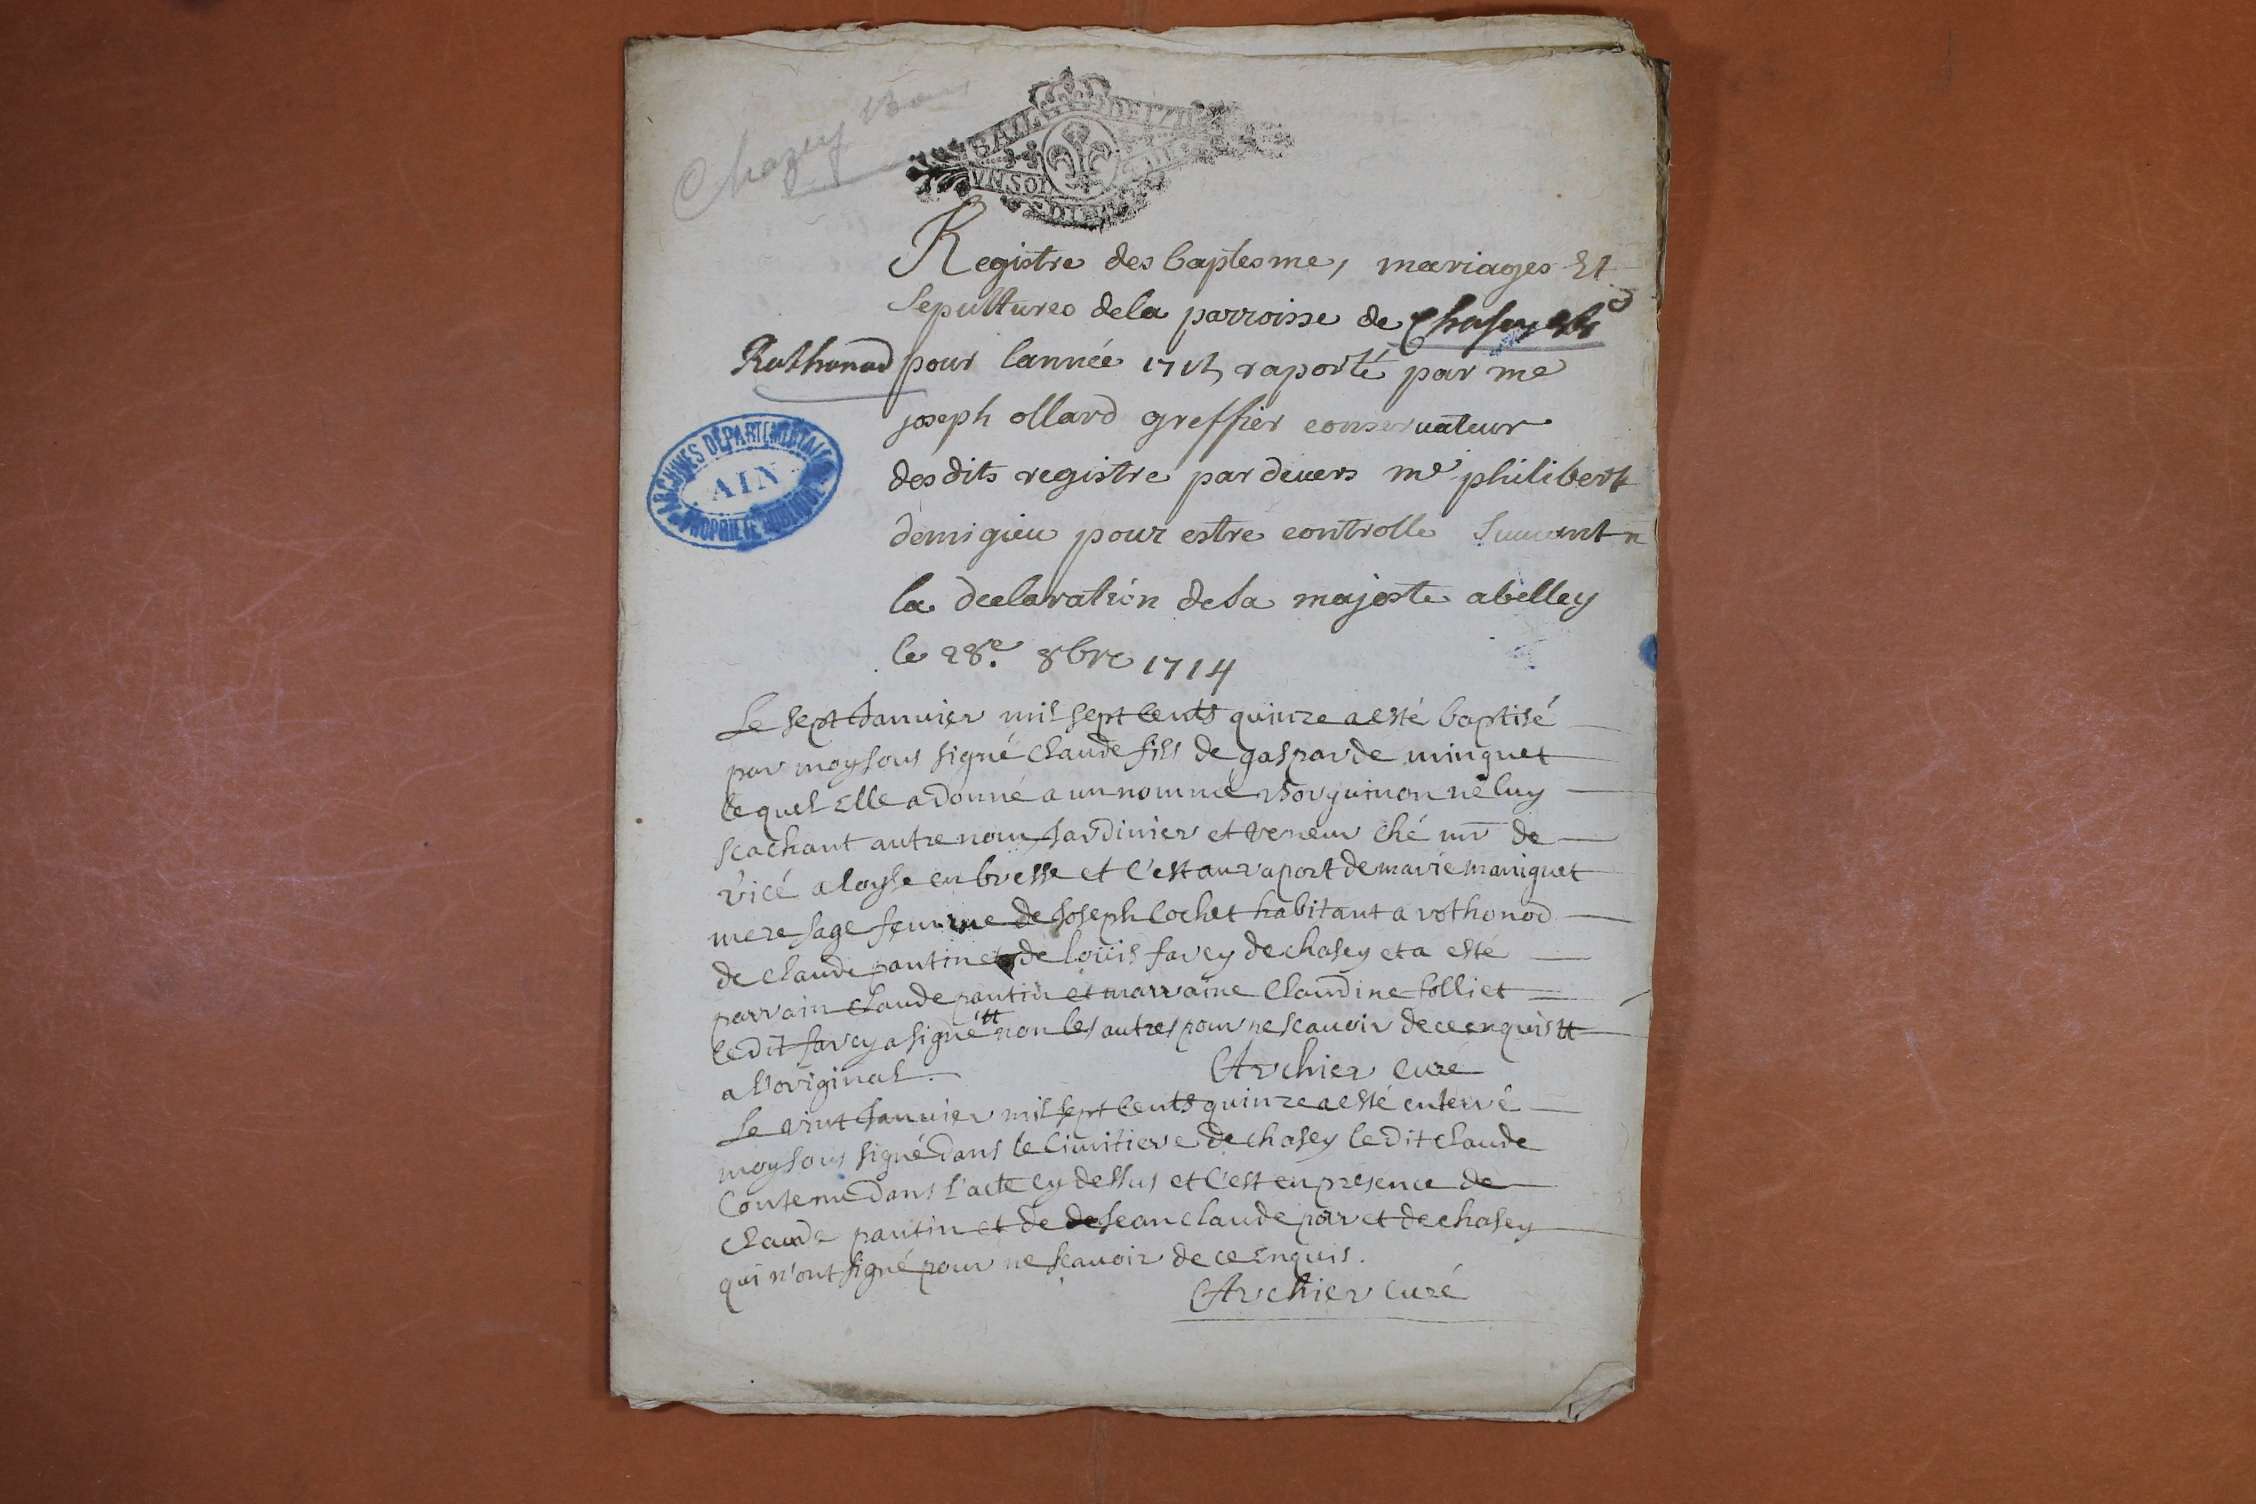 Chazey Bons
GALL DE 1711
UN SOL
Registre des baptesme, mariages Et
Sepultures dela parroisse de Chasey et
Rothonod pour lannée 1715 raporté par me
joseph ollard greffier conservateur
desdits registre par devers me philibert
demigieu pour estre controlle Suivant
la declaration de Sa majeste abelley
le 28e. 8bre 1714
ARCHIVES DEPARTEMENTALES
AIN
PROPRIETE PUBLIQUE
Le sept Janvier mil sept cents quinze a esté baptisé
par moy sous signé Claude fils de gasparde minguet
lequel Elle a donné a un nommé Bourguinon ne luy
scachant autre nom Jardinier et veneur ché mr de
ricé a loyse en bresse et c'est au raport de marie maniguet
mere sage femme de Joseph Cochet habitant a rothonod
de Claude pantin et de loüis favey de chasey et a esté
parrain Claude pantin et marraine Claudine Colliet
ledit favey a signé tt non les autres pour ne scavoir de ce enquis tt
a l'original. Archier curé
Le vint Janvier mil sept cents quinze a esté enterré
moy sous signé dans le cimitiere de chasey ledit Claude
Contenu dans l'acte cy dessus et c'est en presence de
Claude pantin et de de Jean Claude poret de chasey
qui n'ont signé pour ne scavoir de ce enquis.
Archier curé